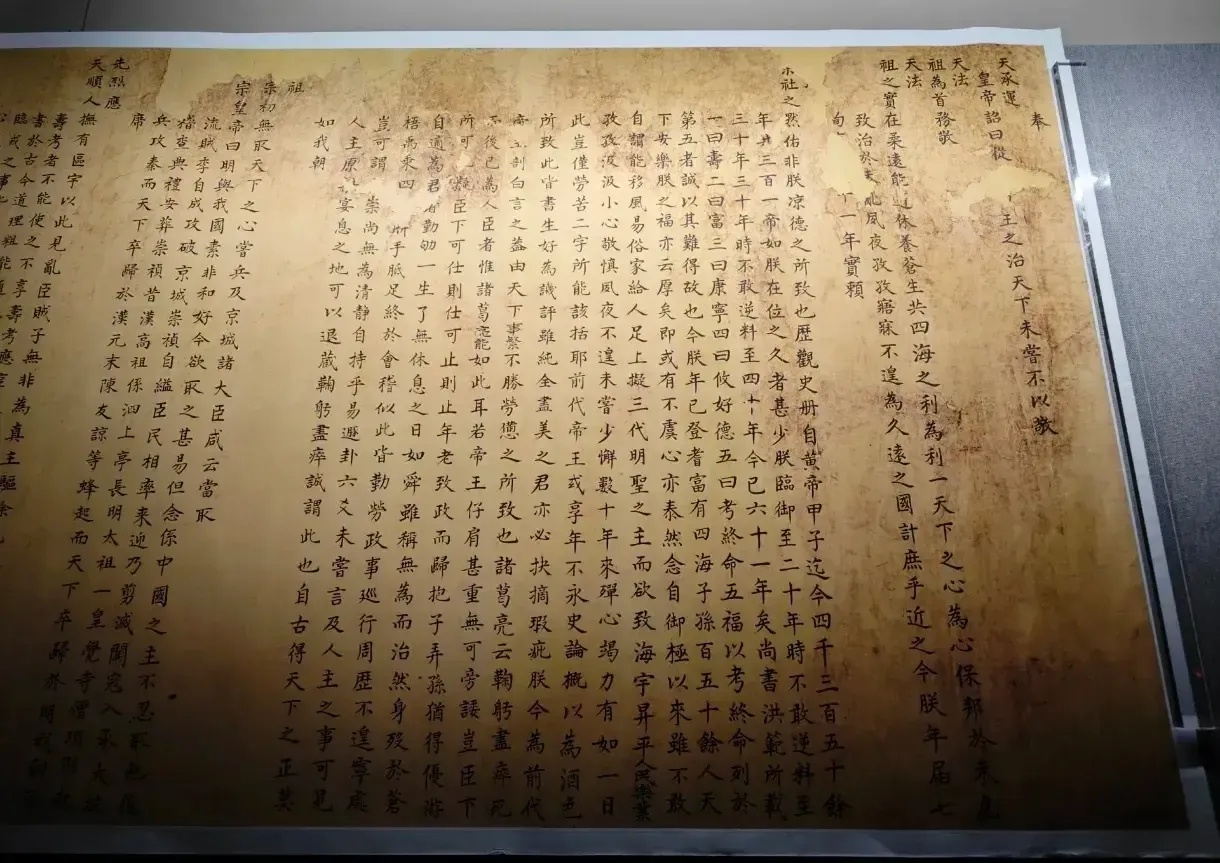 奉
天承運
皇帝詔曰從王之治天下未嘗不以敬
天法
祖為首務敬
天法
祖之實在柔遠能休養蒼生共四海之利為利一天下之心為心保邦於未危
致治於未亂夙夜孜孜寤寐不遑為久遠之國計庶乎近之今朕年屆七
旬十一年實賴
社之默佑非朕凉德之所致也歷觀史册自黃帝甲子迄今四千三百五十餘
年共三百一帝如朕在位之久者甚少朕臨御至二十年時不敢逆料至
三十年三十年時不敢逆料至四十年今已六十一年矣尚書洪範所載
一曰壽二曰富三曰康寧四曰攸好德五曰考終命五福以考終命列於
第五者誠以其難得故也今朕年已登耆富有四海子孫百五十餘人天
下安樂朕之福亦云厚矣即或有不虞心亦泰然念自御極以來雖不敢
自謂能移風易俗家給人足上擬三代明聖之主而欲致海宇昇平人民樂業
孜孜汲汲小心敬慎夙夜不遑未嘗少懈數十年來殫心竭力有如一日
此豈僅勞苦二字所能該括耶前代帝王或享年不永史論概以為酒色
所致此皆書生好為譏評雖純全盡美之君亦必抉摘瑕疵朕今為前代
帝剖白言之蓋由天下事繁不勝勞憊之所致也諸葛亮云鞠躬盡瘁死
而後已為人臣者惟諸葛亮能如此耳若帝王仔肩甚重無可旁諉豈臣下
所可擬臣下可仕則仕可止則止年老致政而歸抱子弄孫猶得優游
自適為君者勤劬一生了無休息之日如舜雖稱無為而治然身歿於蒼
梧禹乘四胼手胝足終於會稽似此皆勤勞政事巡行周歷不遑寧處
豈可謂崇尚無為清靜自持乎易遯卦六爻未嘗言及人主之事可見
人主原宴息之地可以退藏鞠躬盡瘁誠謂此也自古得天下之正莫
如我朝
祖
宗初無取天下之心嘗兵及京城諸大臣咸云當取
宗皇帝曰明與我國素非和好今欲取之甚易但念係中國之主不忍取也後
流賊李自成攻破京城崇禎自縊臣民相率來迎乃剪滅闖寇入承大統
稽查典禮安葬崇禎昔漢高祖係泗上亭長明太祖一皇覺寺僧項羽起
兵攻秦而天下卒歸於漢元末陳友諒等蜂起而天下卒歸於明我朝承
席
先烈應
天順人撫有區宇以此見亂臣賊子無非為真主驅除
壽考者不能使之不享壽考應
書於古今道理粗能
臨戎之事